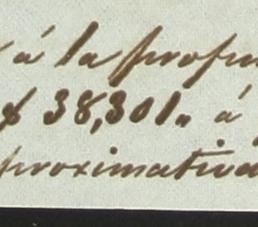 á la profu
$ 38,301„ á
proximativa